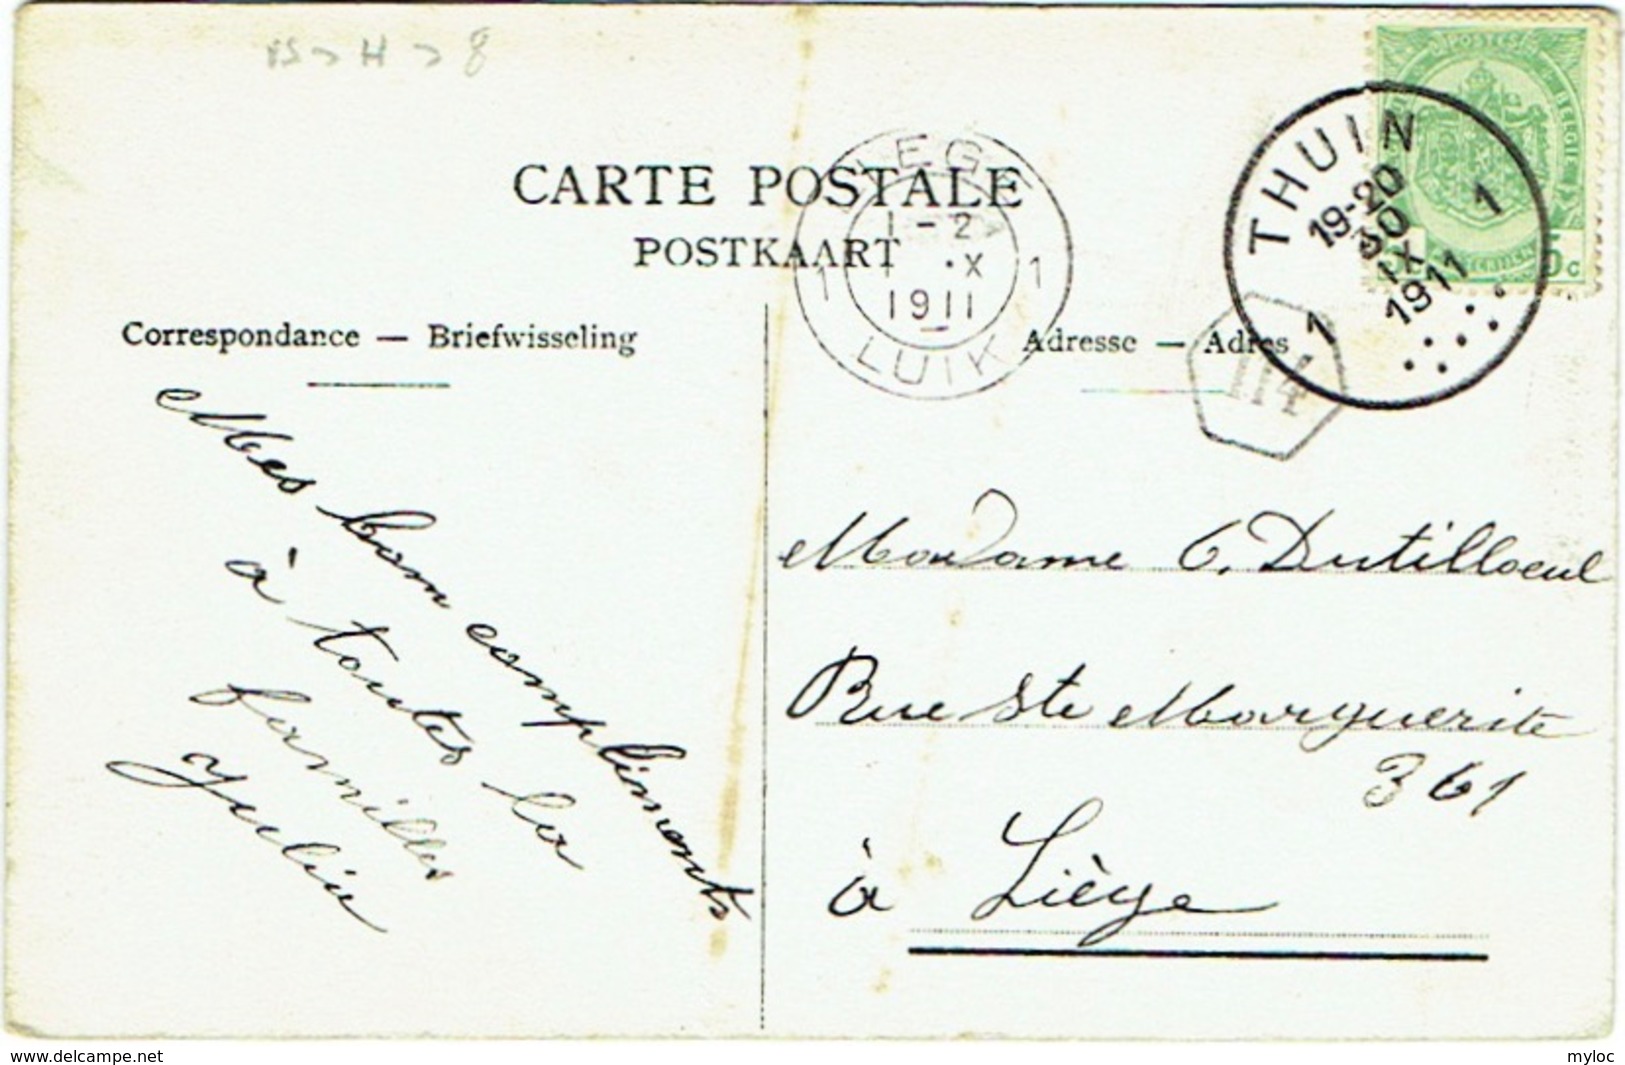 CARTE POSTALE
POSTKAART
Correspondance — Briefwisseling
Adresse — Adres
LIEGE
1-2
1 .X
1911
1 1
LUIK
THUIN
19-20
30
IX
1911
1 1
114
POSTES
BELGIE
5 c
Mes bon compliments
à toutes la
familles
Julia
Madame C. Dutilloeul
Rue Ste Marguerite
361
à Liège
delcampe.net
myloc